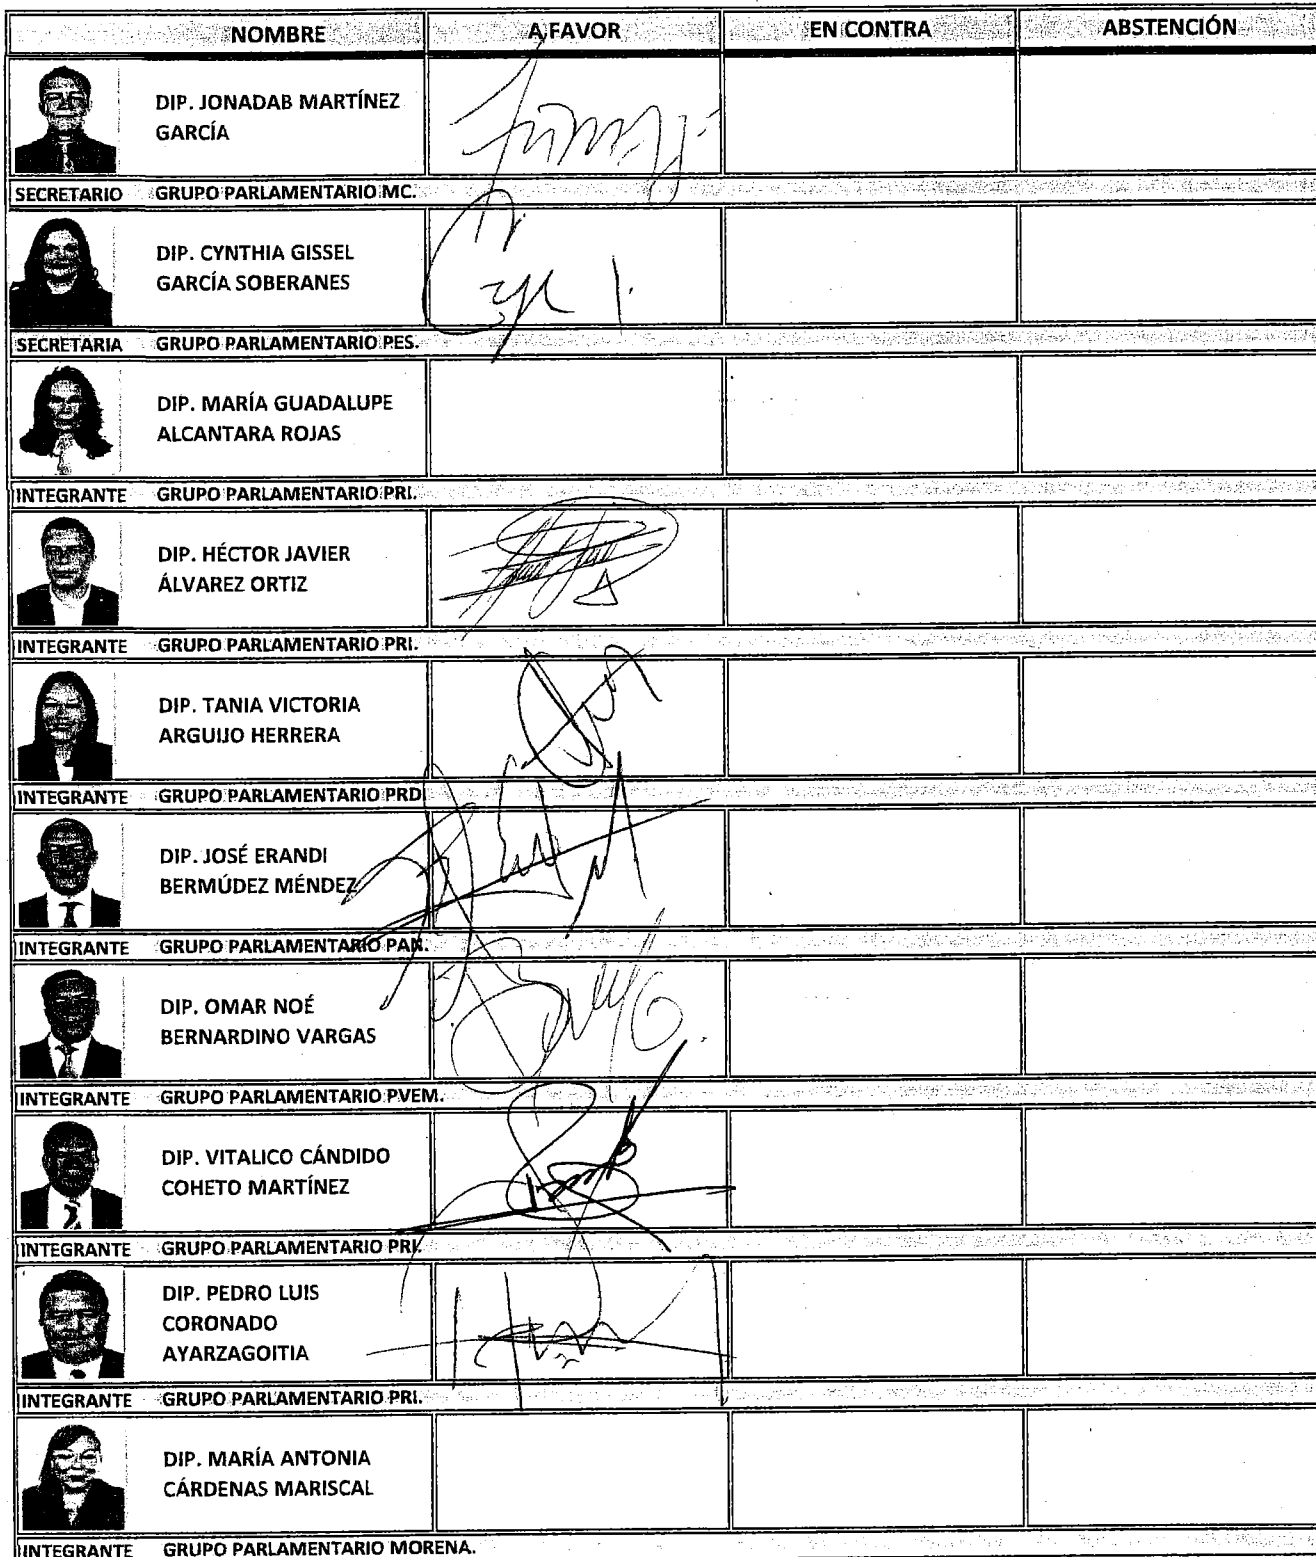 NOMBRE A FAVOR EN CONTRA ABSTENCIÓN
DIP. JONADAB MARTÍNEZ
GARCÍA
SECRETARIO GRUPO PARLAMENTARIO MC.
DIP. CYNTHIA GISSEL
GARCÍA SOBERANES
SECRETARIA GRUPO PARLAMENTARIO PES.
DIP. MARÍA GUADALUPE
ALCANTARA ROJAS
INTEGRANTE GRUPO PARLAMENTARIO PRI.
DIP. HÉCTOR JAVIER
ÁLVAREZ ORTIZ
INTEGRANTE GRUPO PARLAMENTARIO PRI.
DIP. TANIA VICTORIA
ARGUIJO HERRERA
INTEGRANTE GRUPO PARLAMENTARIO PRD
DIP. JOSÉ ERANDI
BERMÚDEZ MÉNDEZ
INTEGRANTE GRUPO PARLAMENTARIO PAN.
DIP. OMAR NOÉ
BERNARDINO VARGAS
INTEGRANTE GRUPO PARLAMENTARIO PVEM.
DIP. VITALICO CÁNDIDO
COHETO MARTÍNEZ
INTEGRANTE GRUPO PARLAMENTARIO PRI.
DIP. PEDRO LUIS
CORONADO
AYARZAGOITIA
INTEGRANTE GRUPO PARLAMENTARIO PRI.
DIP. MARÍA ANTONIA
CÁRDENAS MARISCAL
INTEGRANTE GRUPO PARLAMENTARIO MORENA.